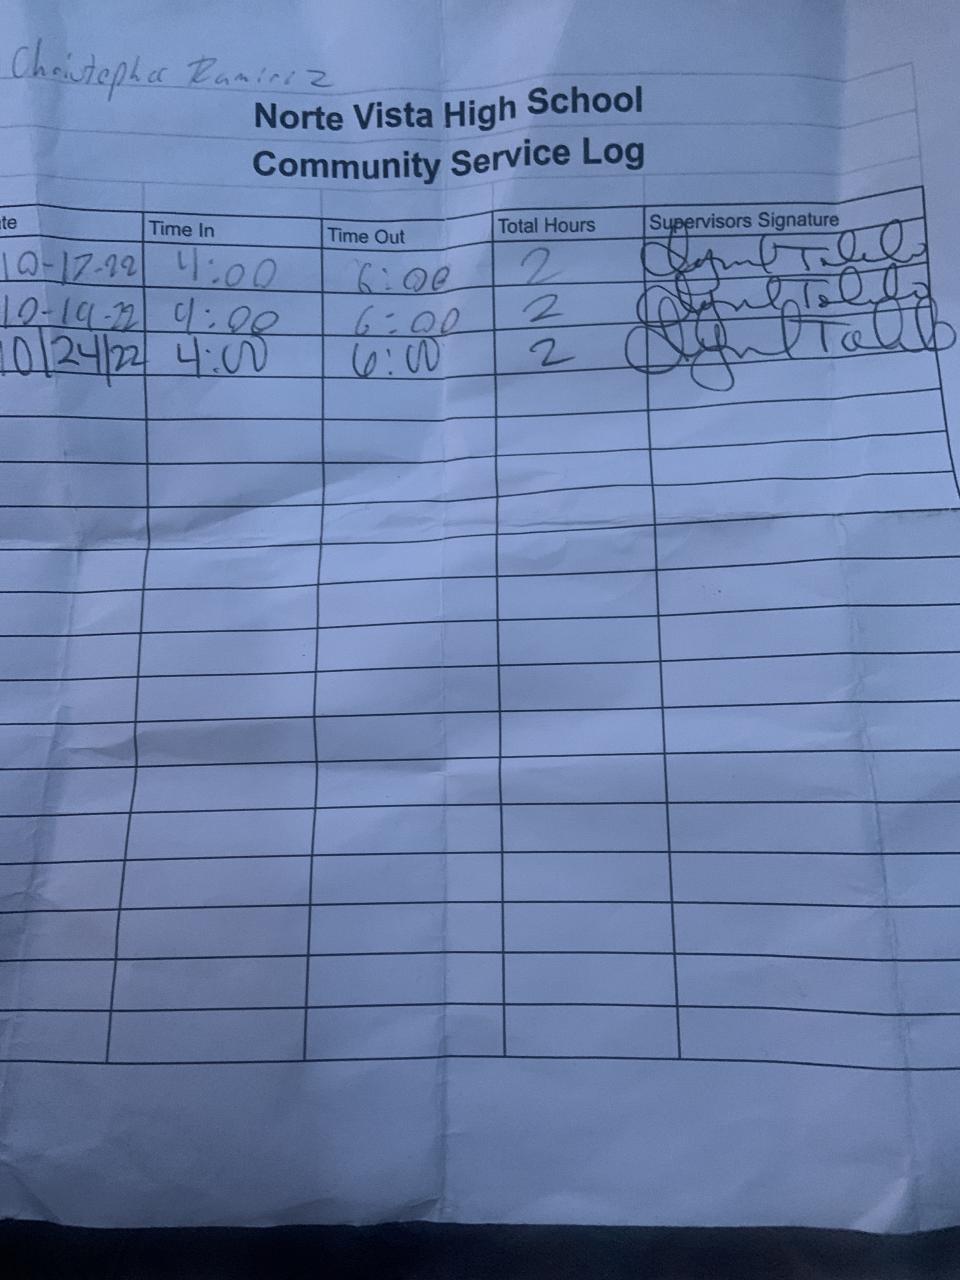 Christopher Ramirez
Norte Vista High School
Community Service Log
te Time In Time Out Total Hours Supervisors Signature
10-17-22 4:00 6:00 2
10-19-22 4:00 6:00 2
10/24/22 4:00 6:00 2